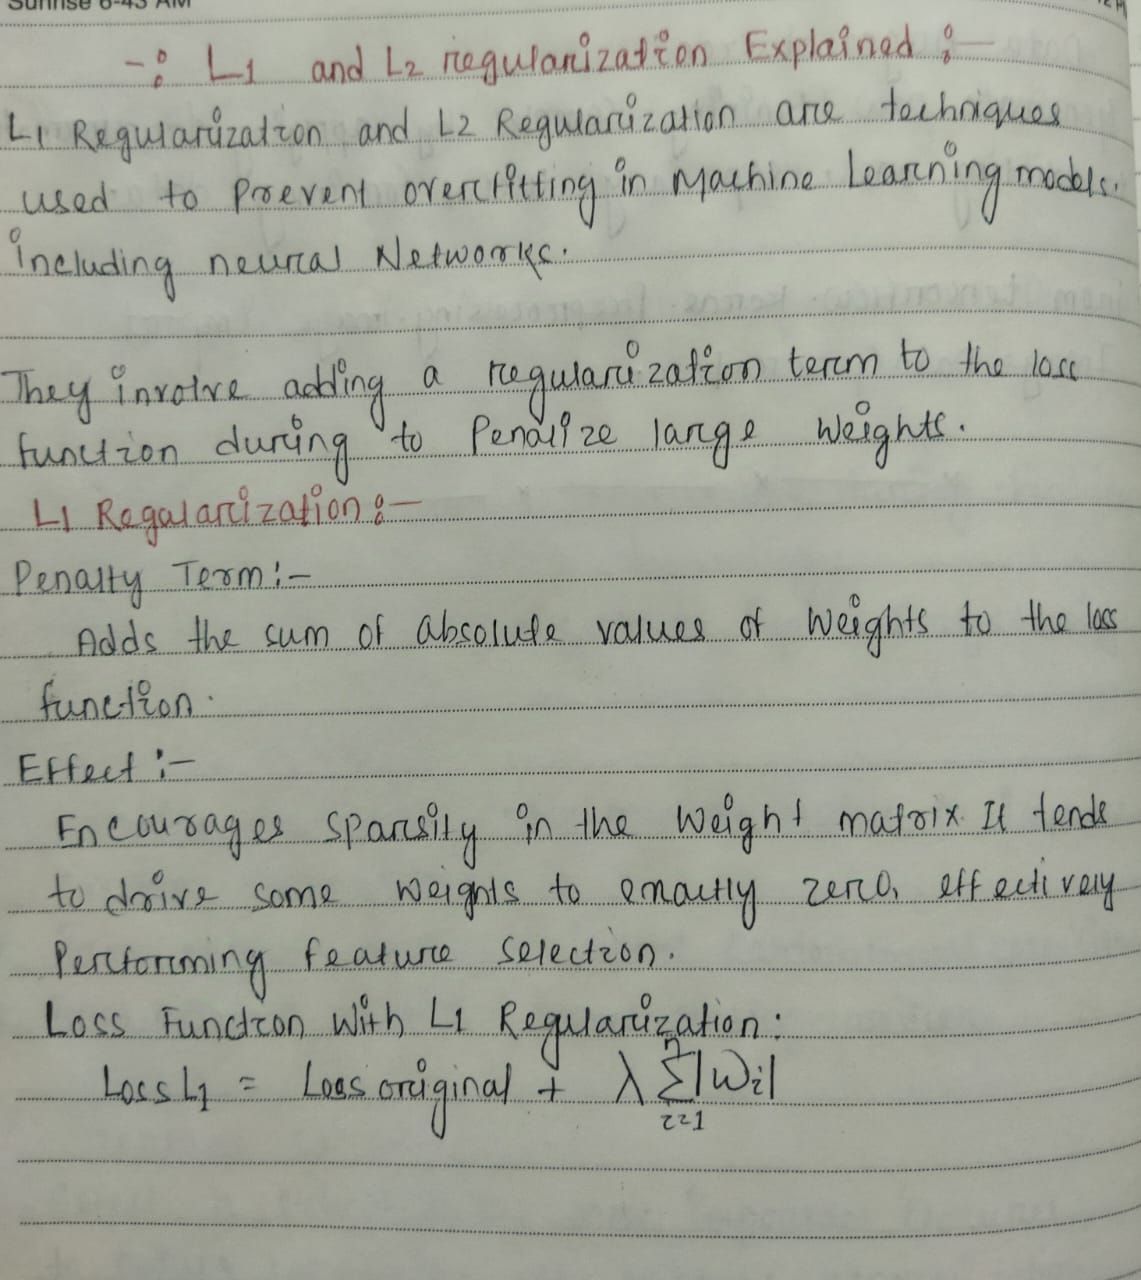 Sunrise 6-43 AM
-: L1 and L2 regularization Explained :-
L1 Regularization and L2 Regularization are techniques
used to prevent overfitting in Machine Learning models.
including neural Networks.
They involve adding a regularization term to the loss
function during to Penalize large Weights.
L1 Regalarization :-
Penalty Term :-
Adds the sum of absolute values of Weights to the loss
function.
Effect :-
Encourages sparsity in the Weight matrix. It tends
to drive some weights to exactly zero, effectively
Performing feature selection.
Loss Function With L1 Regularization :
Loss L1 = Loss original + λ n∑i=1 |Wi|